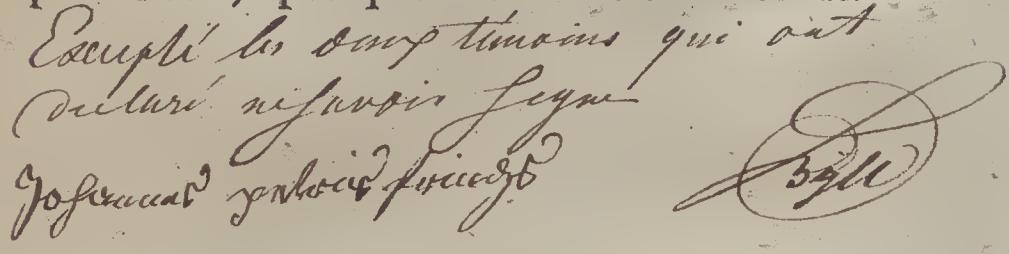 Excepté les deux témoins qui ont
declaré ne savoir signe
Johannes petrus